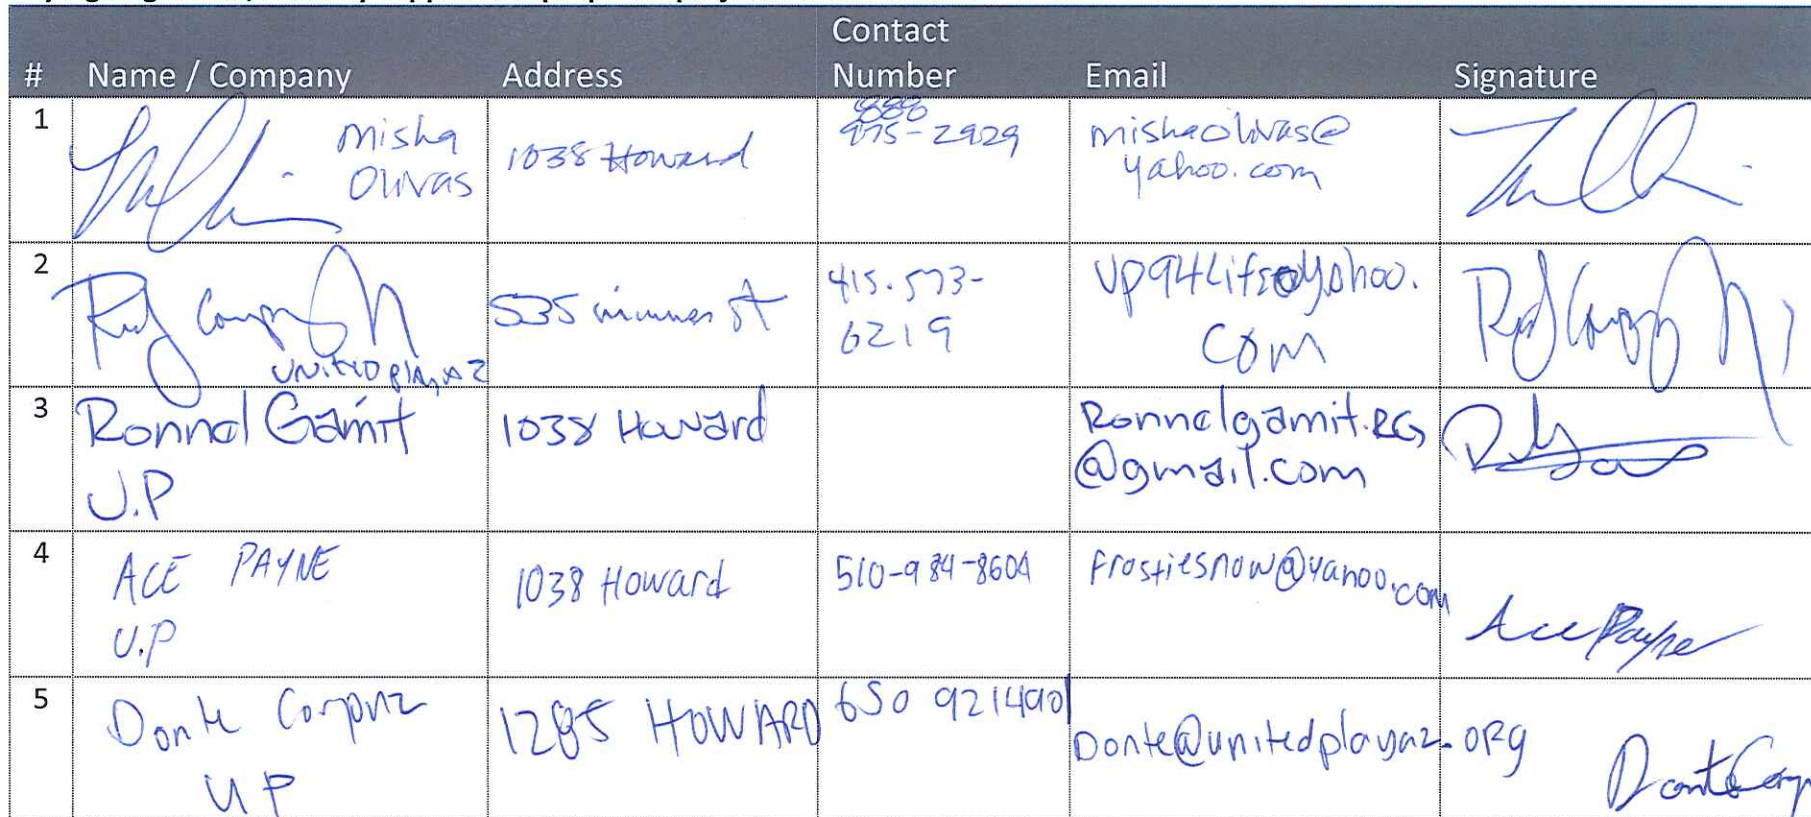 Contact
# Name / Company Address Number Email Signature
1 Misha Olivas 1038 Howard 975-2929 mishaolivas@
yahoo.com
2 United Playaz 535 st 415.573-
6219 UP94Life@yahoo.
com
3 Ronnel Gamit
U.P 1038 Howard Ronnelgamit.RG
@gmail.com
4 ACE PAYNE
U.P 1038 Howard 510-984-8604 frostiesnow@yahoo.com Ace Payne
5 Donte Corpuz
UP 1285 HOWARD 650 9214901 Donte@unitedplayaz.org